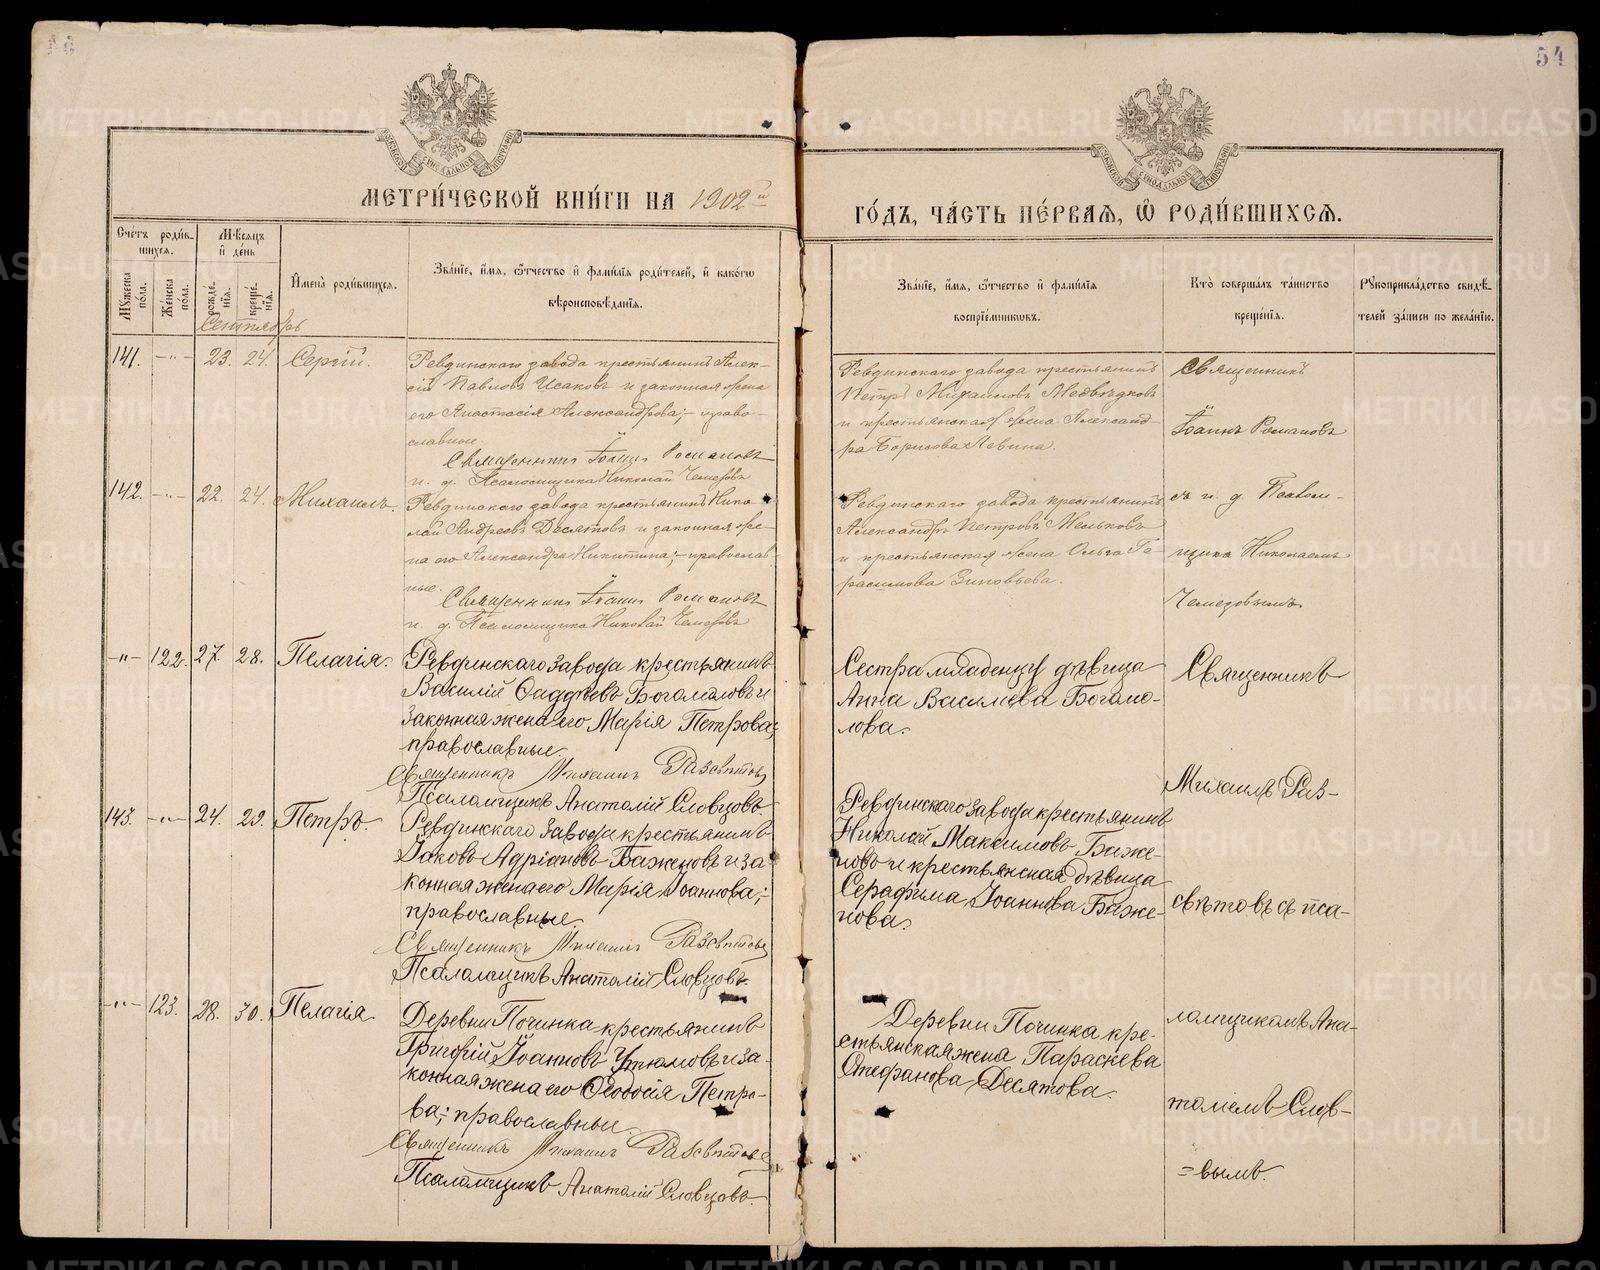 54
МЕТРИ́ЧЕСКОЙ КНИ́ГИ НА 1902й
ГО́ДЪ, ЧА́СТЬ ПЕ́РВАЯ, Ѡ РОДИ́ВШИХСЯ.
Сче́тъ роди́в-
шихся.
Мѣ́сяцъ
и де́нь
Му́жеска
по́ла.
Же́нска
по́ла.
рожде́-
нія.
креще́-
нія.
Имена̀ роди́вшихся.
Зва́ніе, и́мя, ѻ́тчество и фами́лія роди́телей, и како́гѡ
вѣроисповѣ́данія.
Зва́ніе, и́мя, ѻ́тчество и фами́лія
воспріе́мниковъ.
Кто̀ соверша́лъ та́инство
креще́нія.
Рукоприкла́дство свидѣ́-
телей за́писи по жела́нію.
Сентябрь
141. —"— 23. 24. Сергій.
Ревдинскаго завода крестьянинъ Алек-
сій Павловъ Исаковъ и законная жена
его Анастасія Александрова; – право-
славные.
Священникъ Іоаннъ Романовъ
и. д. Псаломщика Николай Чемезовъ
Ревдинскаго завода крестьянинъ
Петръ Михаиловъ Медвѣдковъ
и крестьянская жена Александ-
ра Борисова Левина.
Священникъ
Іоаннъ Романовъ
142. —"— 22. 24. Михаилъ.
Ревдинскаго завода крестьянинъ Нико-
лай Андреевъ Десятовъ и законная же-
на его Александра Никитина; – православ-
ные.
Священникъ Іоаннъ Романовъ
и. д. Псаломщика Николай Чемезовъ
Ревдинскаго завода крестьянинъ
Александръ Петровъ Мельковъ
и крестьянская жена Ольга Ге-
расимова Зиновьева.
съ и. д. Псалом-
щика Николаемъ
Чемезовымъ
—"— 122. 27. 28. Пелагія.
Ревдинскаго завода крестьянинъ
Василій Фаддѣевъ Богомоловъ и
законная жена его Марія Петрова;
православные.
Священникъ Михаилъ Разсвѣтовъ
Псаломщикъ Анатолій Словцовъ.
Сестра младенцу дѣвица
Анна Васильева Богомо-
лова.
Священникъ
Михаилъ Раз-
143. —"— 24. 29. Петръ.
Ревдинскаго завода крестьянинъ
Іаковъ Адріановъ Баженовъ и за-
конная жена его Марія Іоаннова;
православные.
Священникъ Михаилъ Разсвѣтовъ
Псаломщикъ Анатолій Словцовъ.
Ревдинскаго завода крестьянинъ
Николай Максимовъ Баже-
новъ и крестьянская дѣвица
Серафима Іоаннова Баже-
нова.
свѣтовъ съ пса-
—"— 123. 28. 30. Пелагія.
Деревни Починка крестьянинъ
Григорій Іоанновъ Утюмовъ и за-
конная жена его Ѳеодосія Петро-
ва; православные.
Священникъ Михаилъ Разсвѣтовъ
Псаломщикъ Анатолій Словцовъ.
Деревни Починка кре-
стьянская жена Параскева
Стефанова Десятова.
ломщикомъ Ана-
толіемъ Слов-
=вымъ.